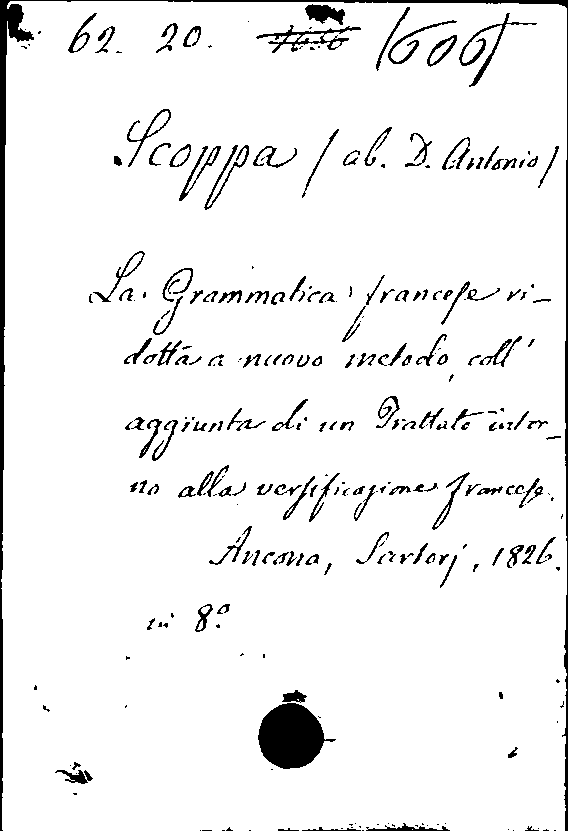 62. 20. 1656 (606)
Scoppa (ab. D. Antonio)
La Grammatica francese ri-
dotta a nuovo metodo, coll'
aggiunta di un Trattato intor-
no alla versificazione francese.
Ancona, Sartorj, 1826.
in 8.º